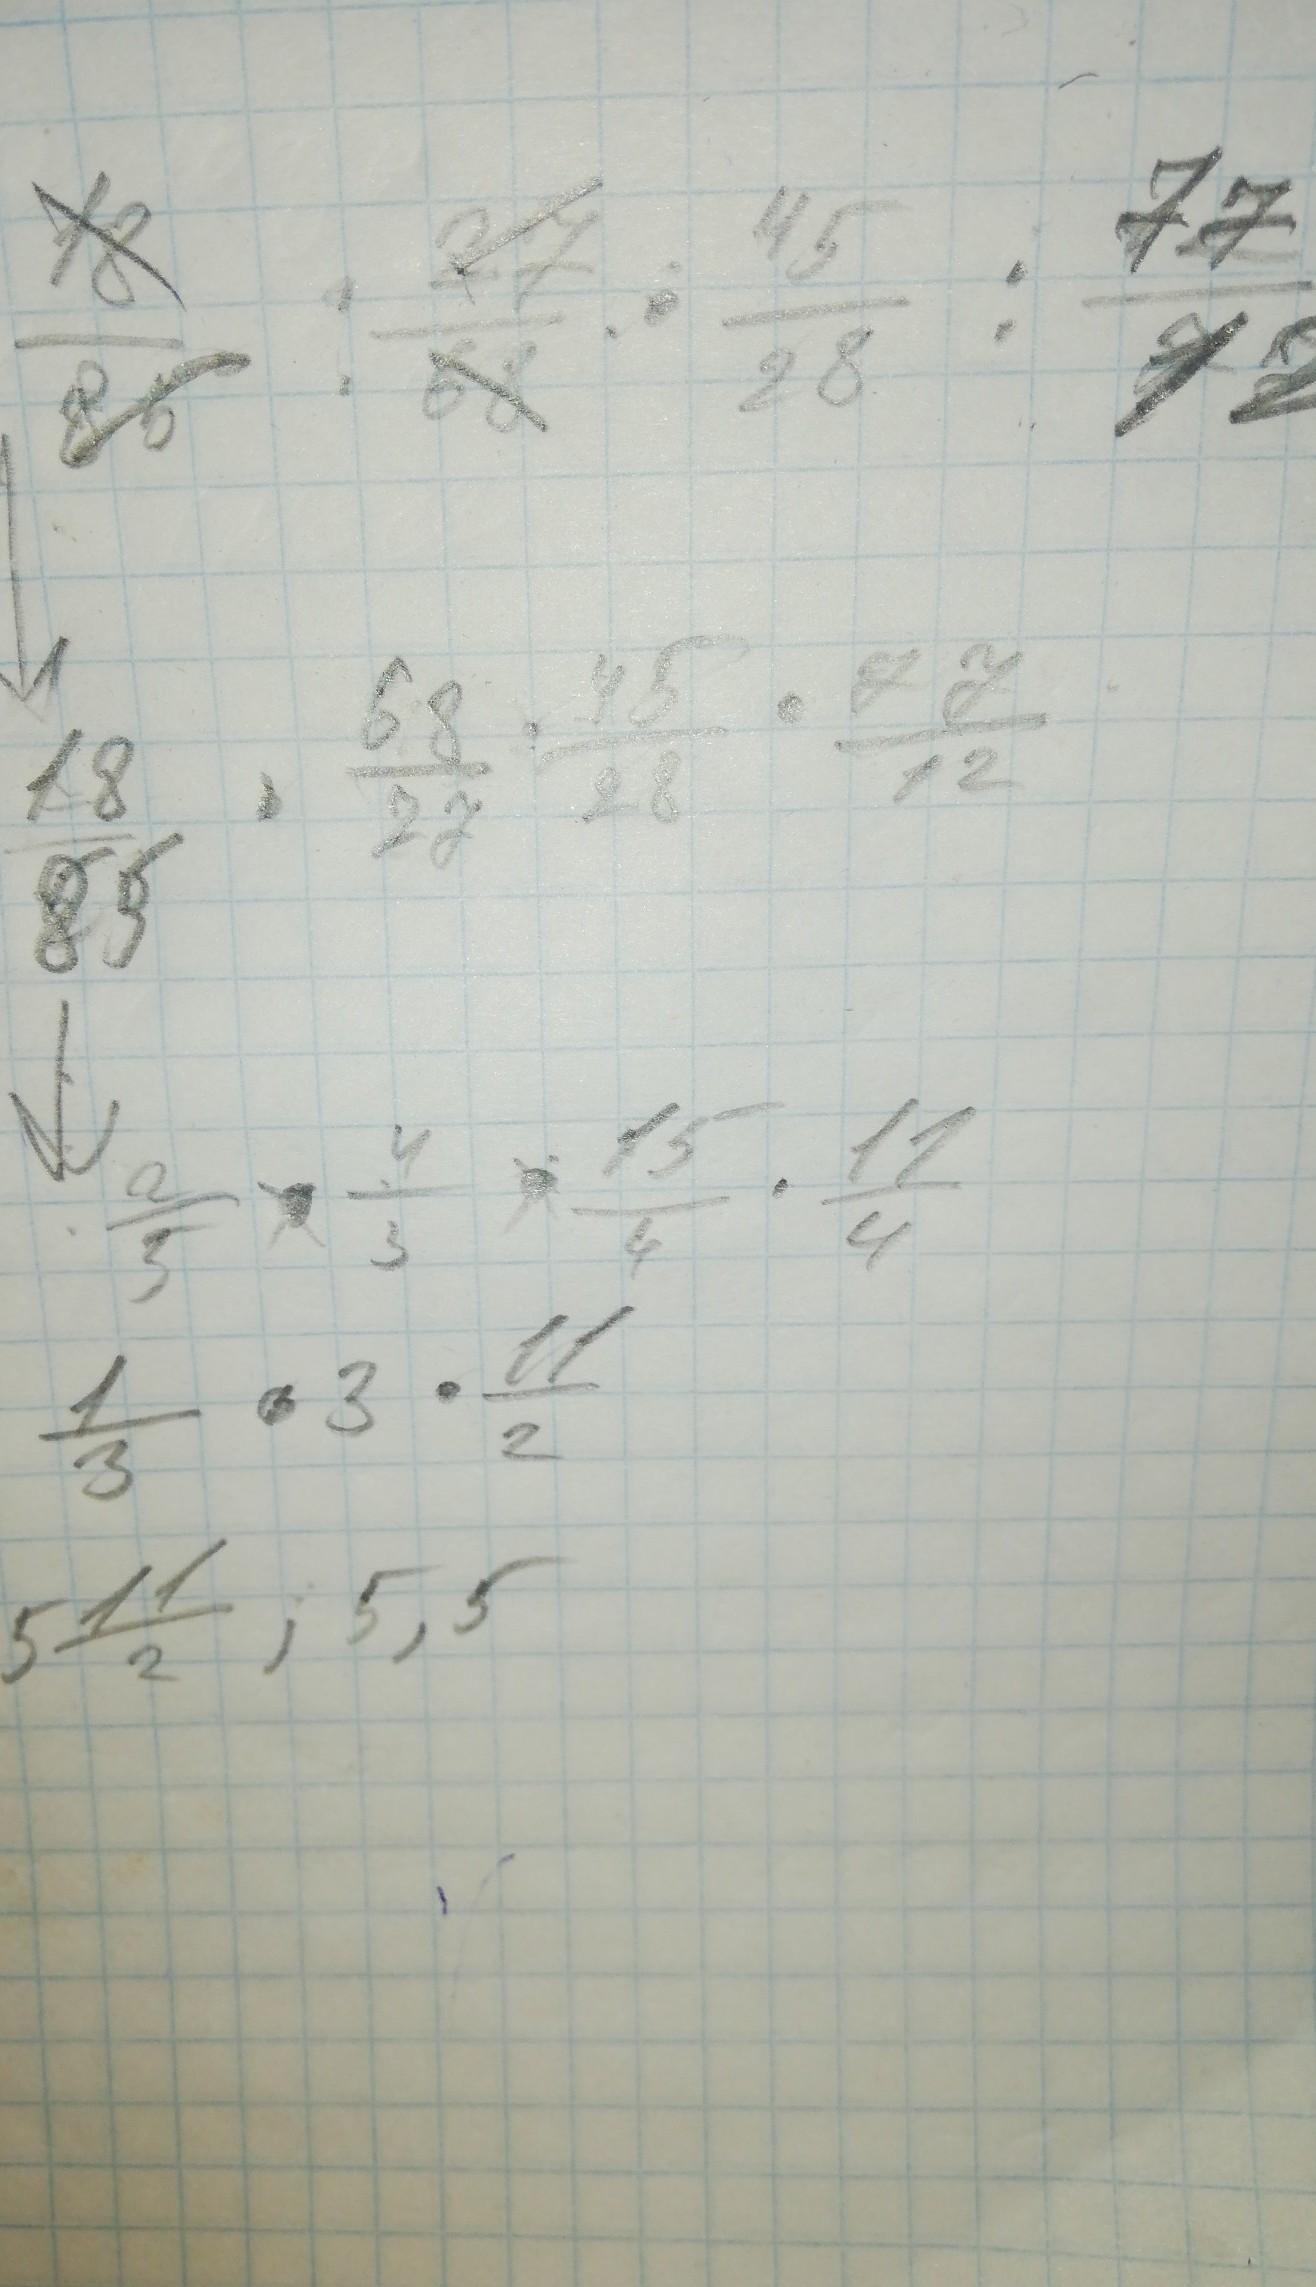 18/85 : 27/68 · 45/28 : 77/12
18/85 · 68/27 · 45/28 · 77/12
2/5 · 4/3 · 15/4 · 11/4
1/3 · 3 · 11/2
5 11/2 ; 5,5